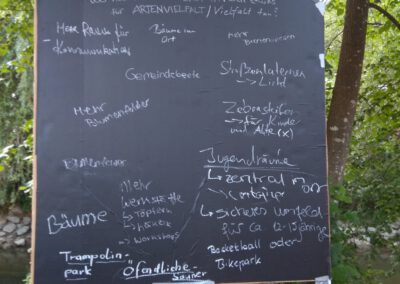 für ARTENVIELFALT / Vielfalt tun?
Mehr Räume für
Kommunikation
Bäume im
Ort
Mehr
Gemeindebeete
Straßenlaternen
→ Licht
Mehr
Blumenfelder
Zebrastreifen
→ für Kinder
und Alte (x)
Jugendräume
→ zentral im Ort
→ sicheres Umfeld
für ca 12-15jährige
Mehr
Werkstätte
→ Töpfern
→ Workshops
BÄUME
Basketball oder
Bikepark
Trampolin-
park
Öfendliche